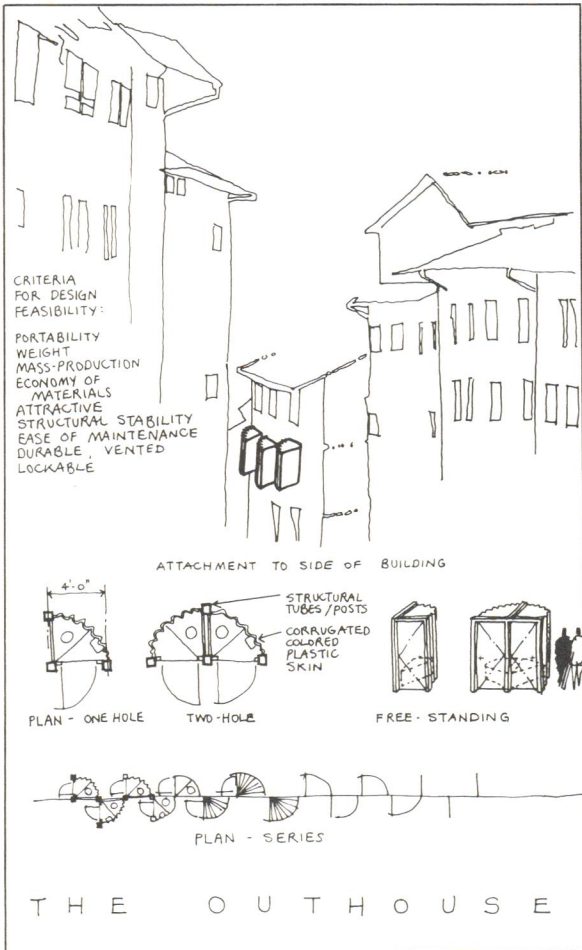 CRITERIA
FOR DESIGN
FEASIBILITY:
PORTABILITY
WEIGHT
MASS-PRODUCTION
ECONOMY OF
MATERIALS
ATTRACTIVE
STRUCTURAL STABILITY
EASE OF MAINTENANCE
DURABLE, VENTED
LOCKABLE
ATTACHMENT TO SIDE OF BUILDING
4'-0"
STRUCTURAL
TUBES/POSTS
CORRUGATED
COLORED
PLASTIC
SKIN
PLAN - ONE HOLE
TWO-HOLE
FREE-STANDING
PLAN - SERIES
THE OUTHOUSE